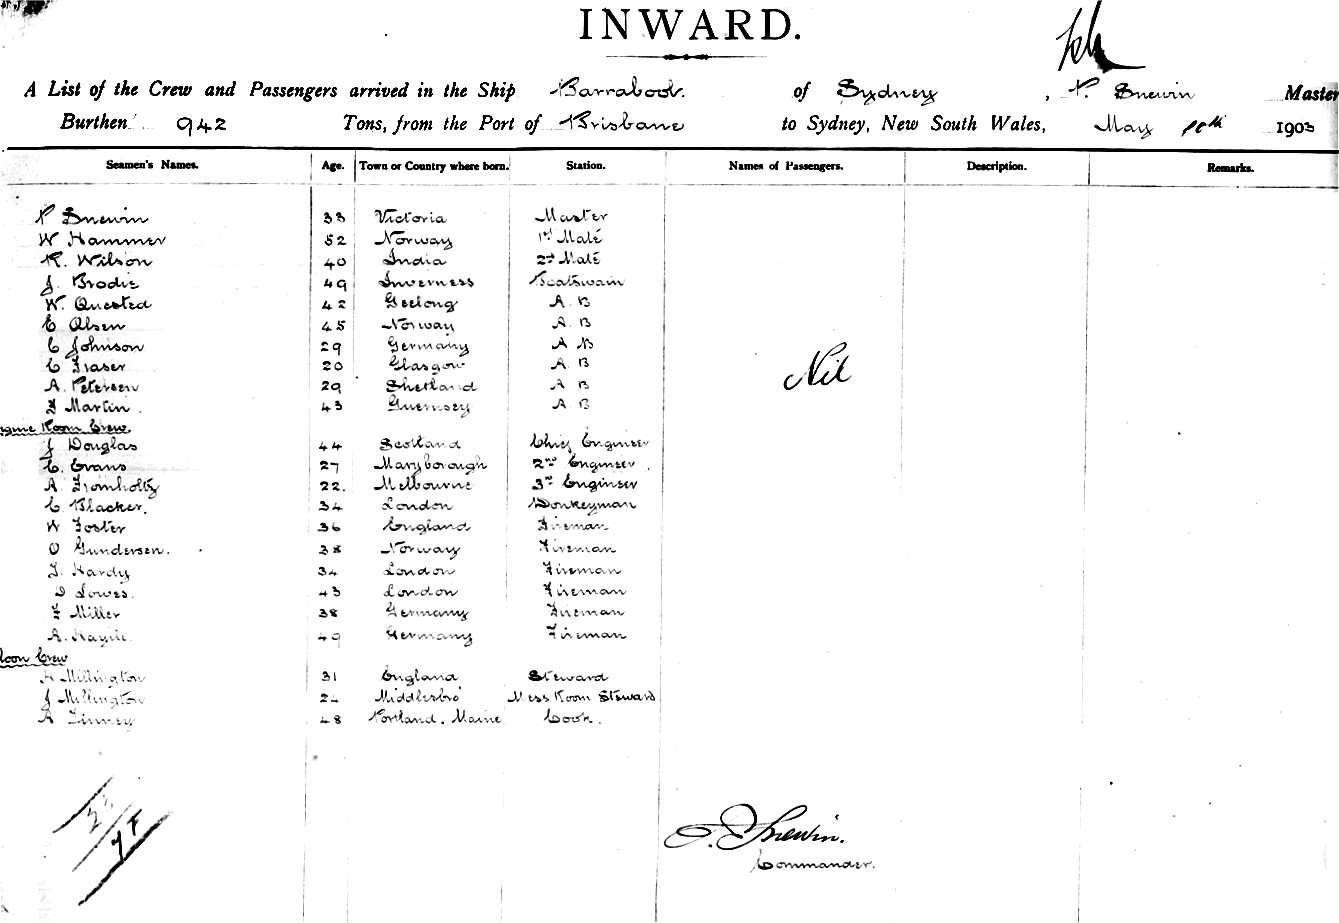 INWARD.
A List of the Crew and Passengers arrived in the Ship Barrabool. of Sydney, P. Snewin Master
Burthen 942 Tons, from the Port of Brisbane to Sydney, New South Wales, May 10th 1903
Seamen's Names. Age. Town or Country where born. Station. Names of Passengers. Description. Remarks.
P Snewin 33 Victoria Master
W Hammer 52 Norway 1st Mate
R. Wilson 40 India 2nd Mate
J. Brodie 49 Inverness Boatswain
W. Quested 42 Geelong A. B
E Olsen 45 Norway A. B
C Johnson 29 Germany A B
C Fraser 20 Glasgow A. B
A. Petersen 29 Shetland A B
F Martin. 43 Guernsey A B
Nil
Room Crew.
J Douglas 44 Scotland Chief Engineer
C. Evans 27 Maryborough 2nd Engineer.
A. Fromholtz 22. Melbourne 3rd Engineer
C Blacker. 34 London Donkeyman
W Foster 36 England Fireman
O Gundersen. 38 Norway Fireman
T. Hardy 34 London Fireman
D Lowes. 43 London Fireman
F Miller 38 Germany Fireman
A. 49 Germany Fireman
Crew
Millington 31 England Steward
J Millington 24 Middlesbro' Mess Room Steward
A Finney 48 Portland. Maine Cook.
P. Snewin.
Commander.